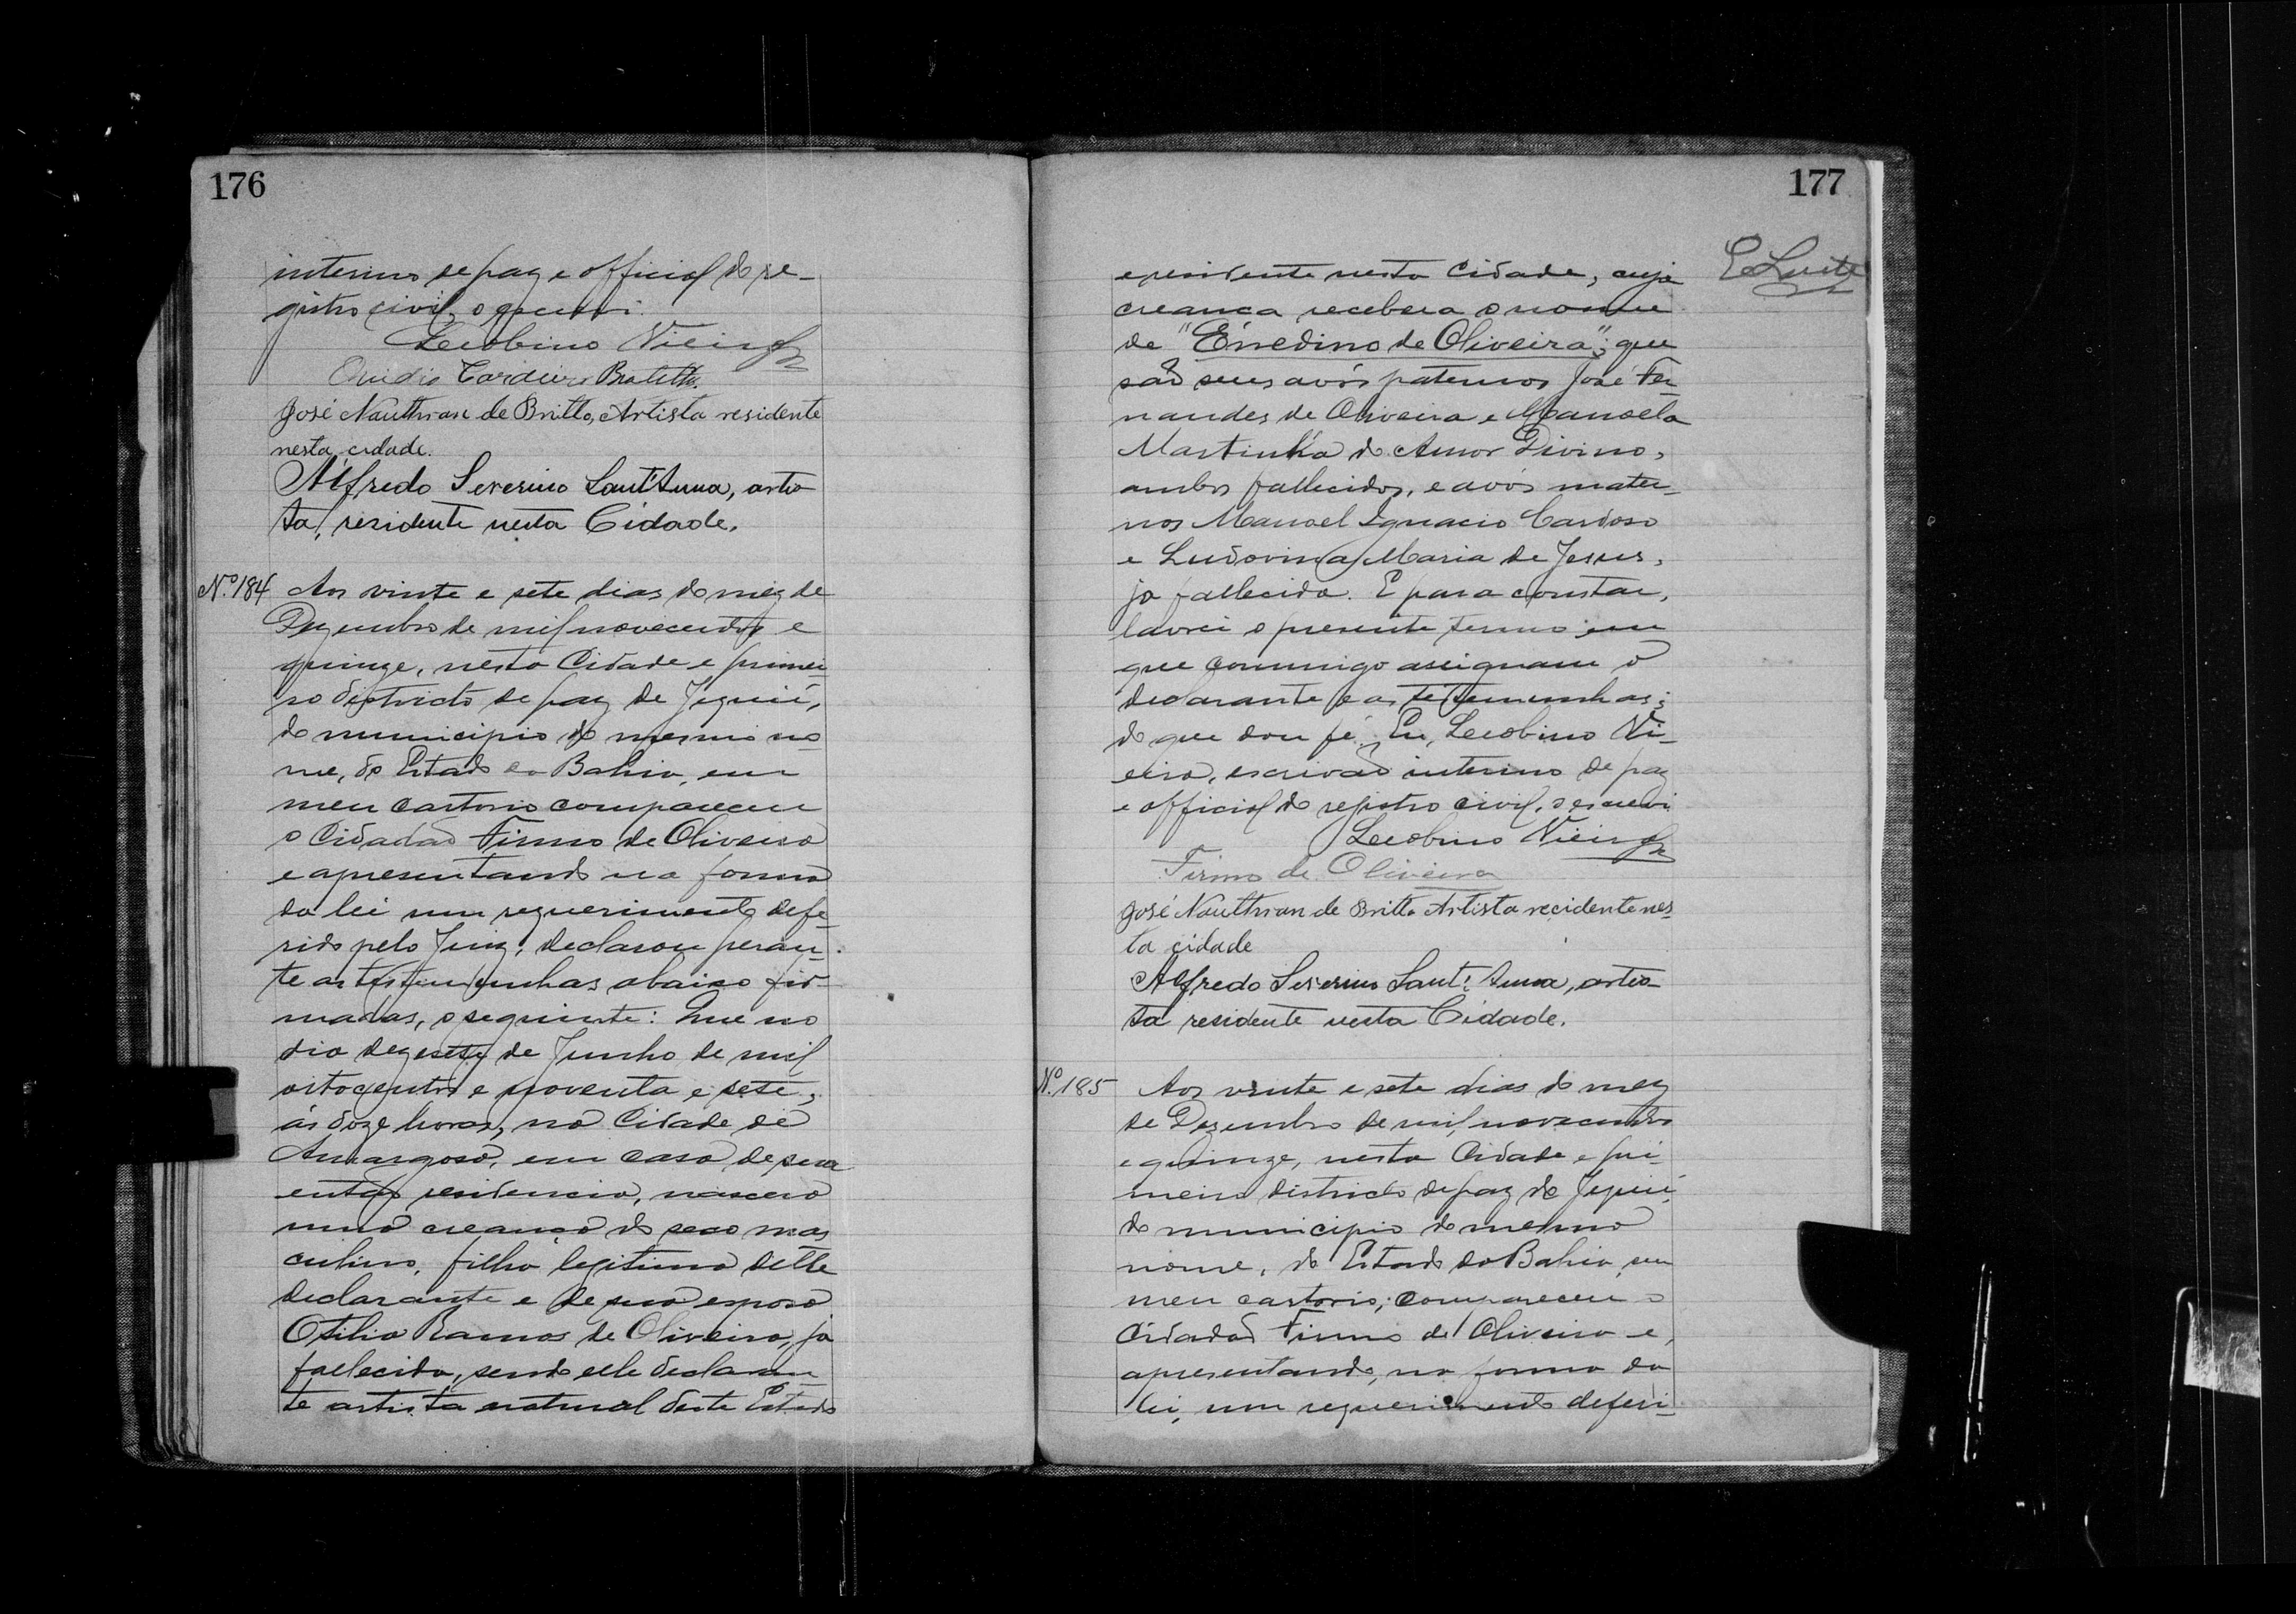 176
interino de paz e official do re-
gistro civil, o escrevi.
Leobino Vieira
Ouidio Cordeiro
José Nauthman de Britto, Artista residente
nesta cidade.
Alfredo Severino Sant'Anna, artis
ta, residente nesta Cidade.
Nº 184 Aos vinte e sete dias do mez de
Dezembro de mil novecentos e
quinze, nesta Cidade e primei-
ro districto de paz de Jequié,
do municipio do mesmo no-
me, do Estado da Bahia, em
meu cartorio compareceu
o Cidadão Firmo de Oliveira
e apresentando na forma
da lei um requerimento defe-
rido pelo Juiz, declarou peran-
te as testemunhas abaixo fir-
madas, o seguinte: Que no
dia dezesete de Junho de mil
oitocentos e noventa e sete,
ás doze horas, na Cidade de
Amargosa, em casa de sua
então residencia, nascera
uma creança do sexo mas
culino, filho legitimo delle
declarante e de sua esposa
Otilia Ramos de Oliveira, ja
fallecida, sendo elle declaran-
te artista natural deste Estado
177
e residente nesta Cidade, cuja
creança recebera o nome
de "Énedino de Oliveira"; que
são seus avós paternos José Fer-
nandes de Oliveira e Manoela
Martinha do Amor Divino,
ambos fallecidos, e avós mater-
nos Manoel Ignacio Cardoso
e Ludovina Maria de Jesus,
ja fallecida. E para constar,
lavrei o presente termo em
que commigo assignam o
declarante e as testemunhas;
do que dou fé. Eu, Leobino Vi-
eira, escrivão interino de paz
e official do registro civil, o escrevi
Leobino Vieira
Firmo de Oliveira
José Nauthman de Britto Artista recidente nes
ta cidade
Alfredo Severino Sant'Anna, artis-
ta residente nesta Cidade.
Nº 185 Aos vinte e sete dias do mez
de Dezembro de mil novecentos
e quinze, nesta Cidade e pri-
meiro districto de paz de Jequié,
do municipio do mesmo
nome, do Estado da Bahia, em
meu cartorio, compareceu o
Cidadão Firmo de Oliveira e,
apresentando, na forma da
lei, um requerimento deferi-